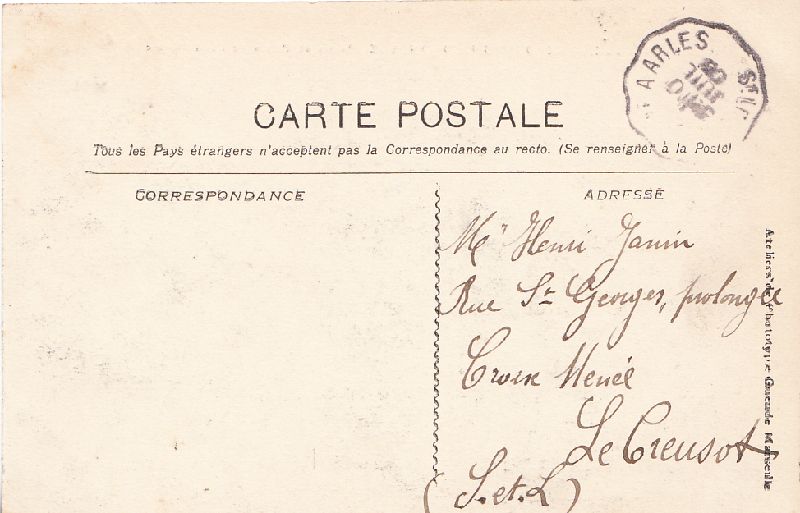 A ARLES
JUIL
CARTE POSTALE
Tous les Pays étrangers n'acceptent pas la Correspondance au recto. (Se renseigner à la Poste)
CORRESPONDANCE
ADRESSE
Mr Henri Janin
Rue St Georges, prolongée
Croix Menée
Le Creusot
(S. et. L)
Ateliers de Phototypie Guende Marseille